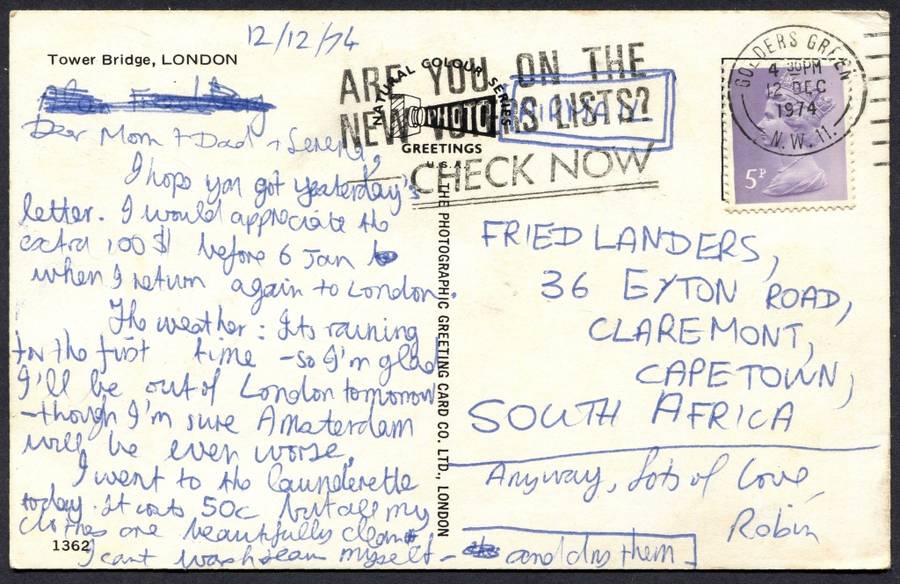 12/12/74
Tower Bridge, LONDON
Dear Mom + Dad +
I hope you got yesterday's
letter. I would appreciate the
extra 100$ before 6 Jan
when I return again to London.
The weather: Its raining
for the first time - so I'm glad
I'll be out of London tomorrow
- though I'm sure Amsterdam
will be even worse.
I went to the launderette
today. It costs 50c but all my
clothes are beautifully clean
I cant wash myself -
and dry them
1362
NATURAL COLOUR SERIES
PHOTO
GREETINGS
U.S.A.
THE PHOTOGRAPHIC GREETING CARD CO. LTD., LONDON
ARE YOU ON THE
NEW VOTERS LISTS?
CHECK NOW
AIRMAIL
GOLDERS GREEN
4 30PM
12 DEC
1974
N.W.11.
5P
FRIEDLANDERS,
36 EYTON ROAD,
CLAREMONT,
CAPETOWN,
SOUTH AFRICA
Anyway, Lots of Love,
Robin